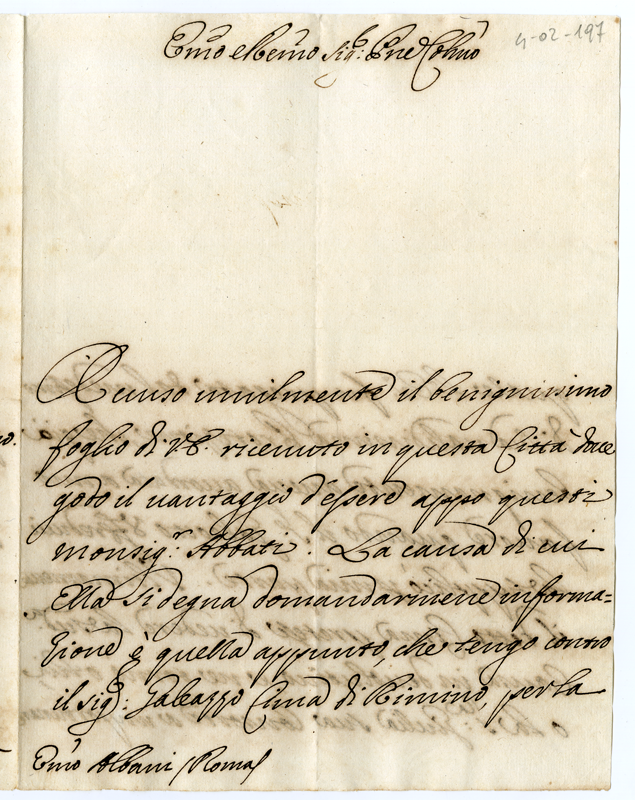 Emo e Remo Sig:e Pne Colmo
4-02-197
Accuso umilmente il benignissimo
foglio di V.E. riceuuto in questa Città doue
godo il uantaggio d'essere appo questi
monsig.r Abbati. La causa di cui
Ella si degna domandarmene informa=
zione è quella appunto, che tengo contro
il sig: Galeazzo Cima di Rimino, per la
Emo Albani /Roma/